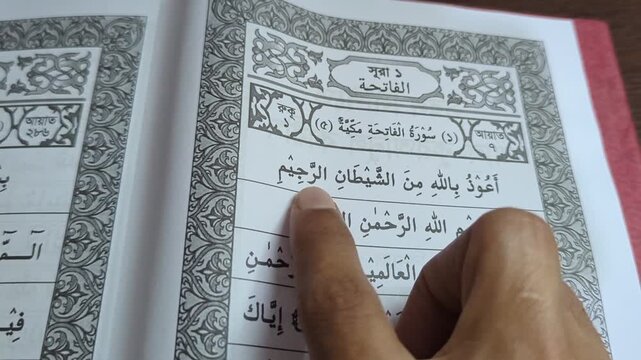 সূরা ১
الفاتحة
রুকু ১
(١) سُوْرَةُ الْفَاتِحَةِ مَكِّيَّةٌ (٥)
আয়াত ৭
أَعُوْذُ بِاللهِ مِنَ الشَّيْطَانِ الرَّجِيْمِ
اللهِ الرَّحْمٰنِ
الْعَالَمِيْنَ
إِيَّاكَ
আয়াত ২৮৬